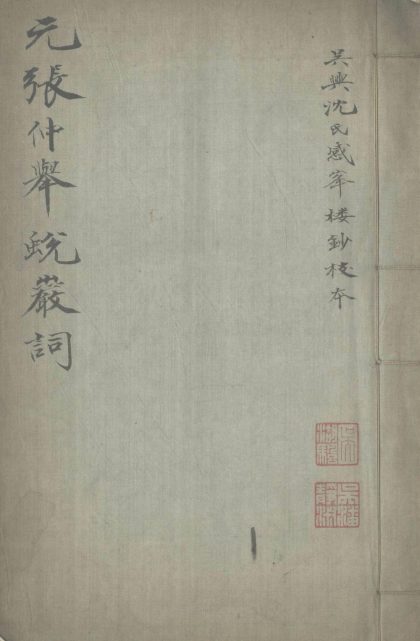 吳興沈氏感峯樓鈔校本
元張仲舉蛻巖詞